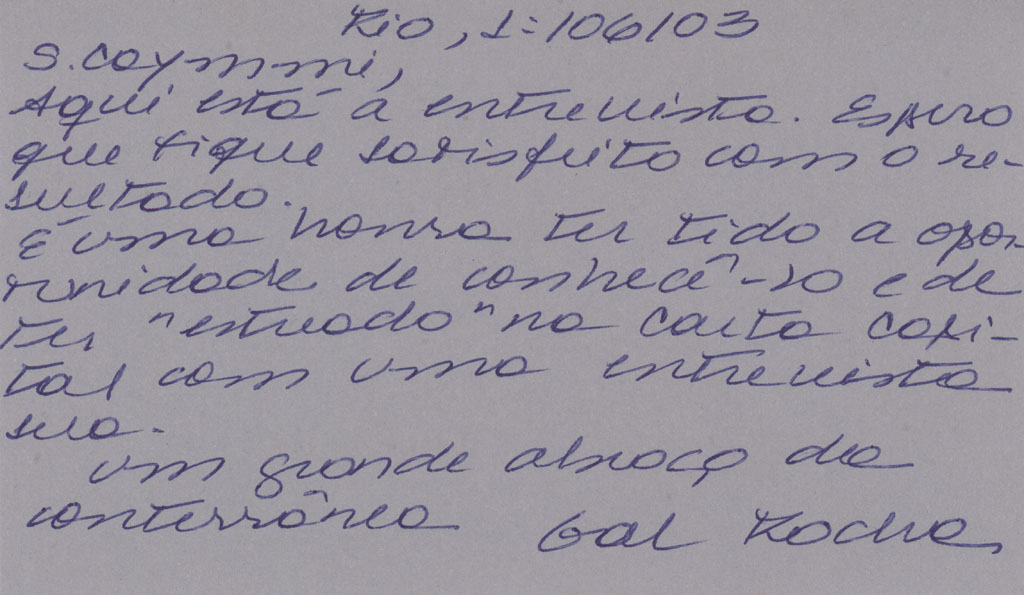 Rio, 1º/06/03
S. Caymmi,
Aqui está a entrevista. Espero
que fique satisfeito com o re-
sultado.
É uma honra ter tido a opor-
tunidade de conhecê-lo e de
ter "estreado" na Carta Capi-
tal com uma entrevista
sua.
Um grande abraço da
conterrânea Gal Rocha